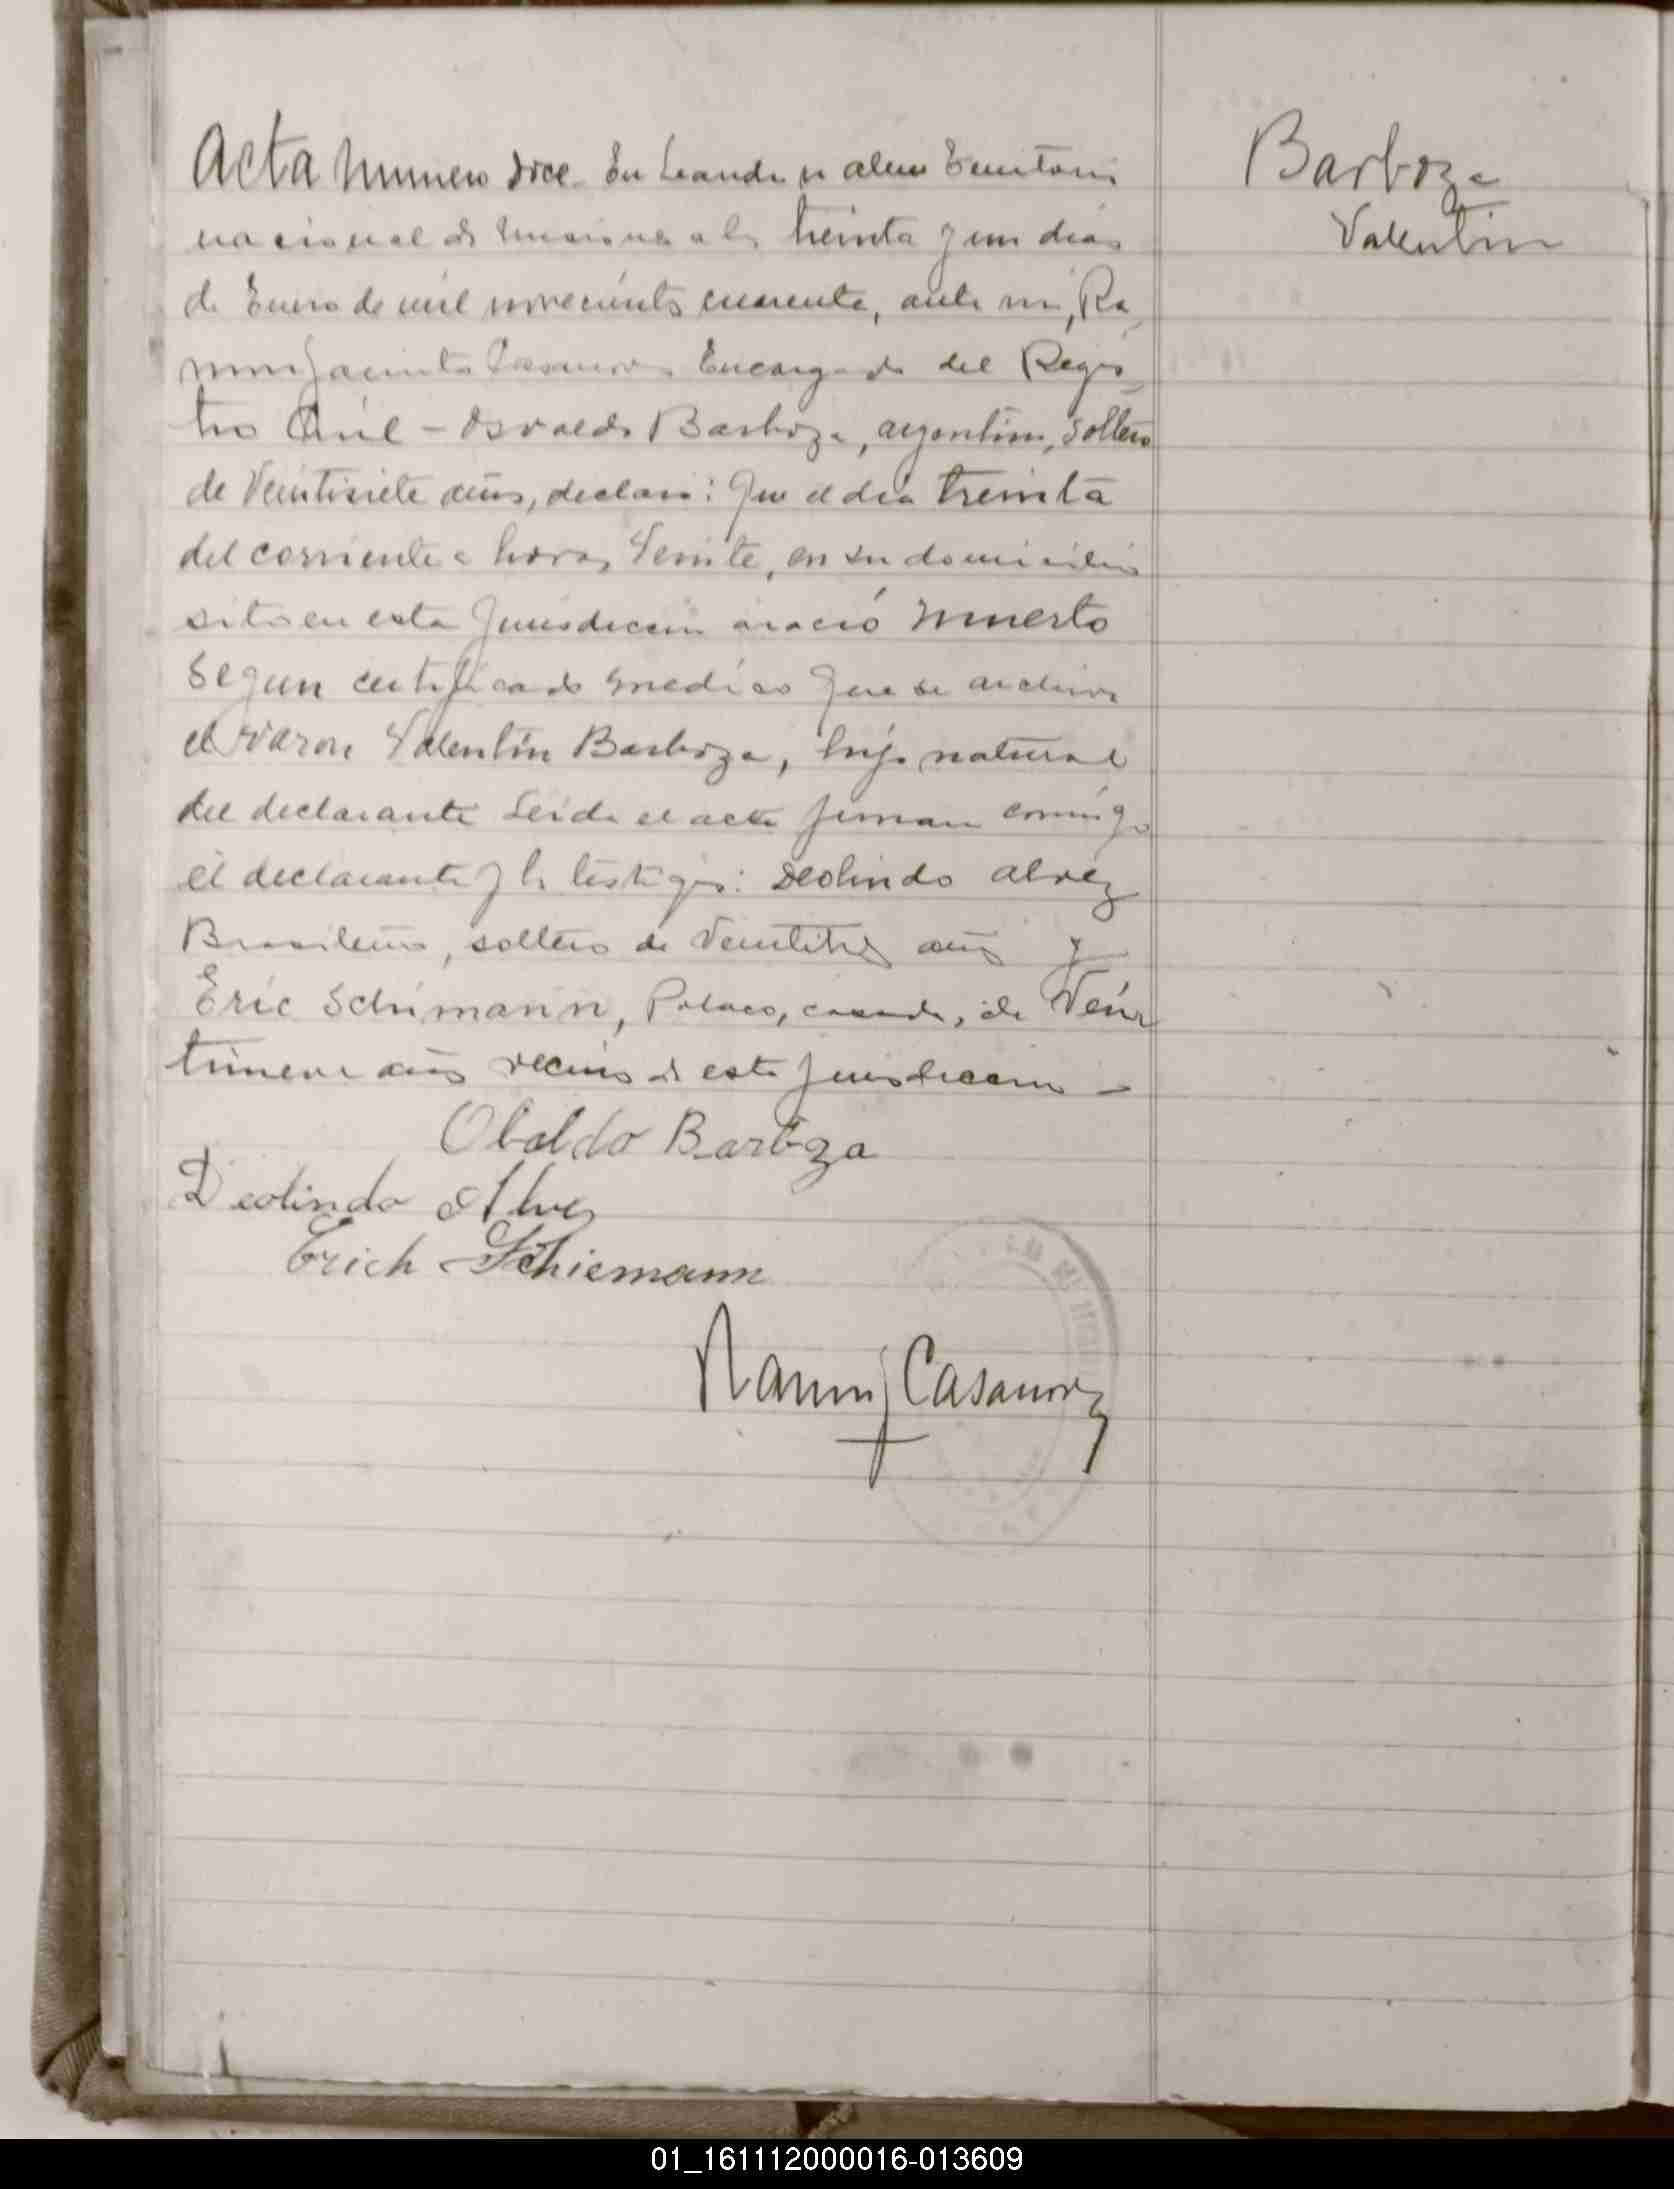 Acta numero doce. En Leandro n alem Territorio
nacional de misiones a los treinta y un dias
de Enero de mil novecientos cuarenta, ante mi, Ra
mon Jacinto Casanova Encargado del Regis
tro Civil - Osvaldo Barboza, argentino, soltero
de Veintisiete años, declaró: Que el día treinta
del corriente a horas Veinte, en su domicilio
sito en esta Jurisdiccion nació muerto
Segun certificado medico que se archiva
el varon Valentin Barboza, hijo natural
del declarante Leida el acta firman conmigo
el declarante y los testigos: Deolindo alvez
Brasileño, soltero de Veintitres años y
Eric Schimann, Polaco, casado, de Vein
tinueve años vecinos de esta jurisdiccion -
Obaldo Barboza
Deolindo Alves
Erich Schiemann
Ramon J Casanova
Barboza
Valentin
01_161112000016-013609